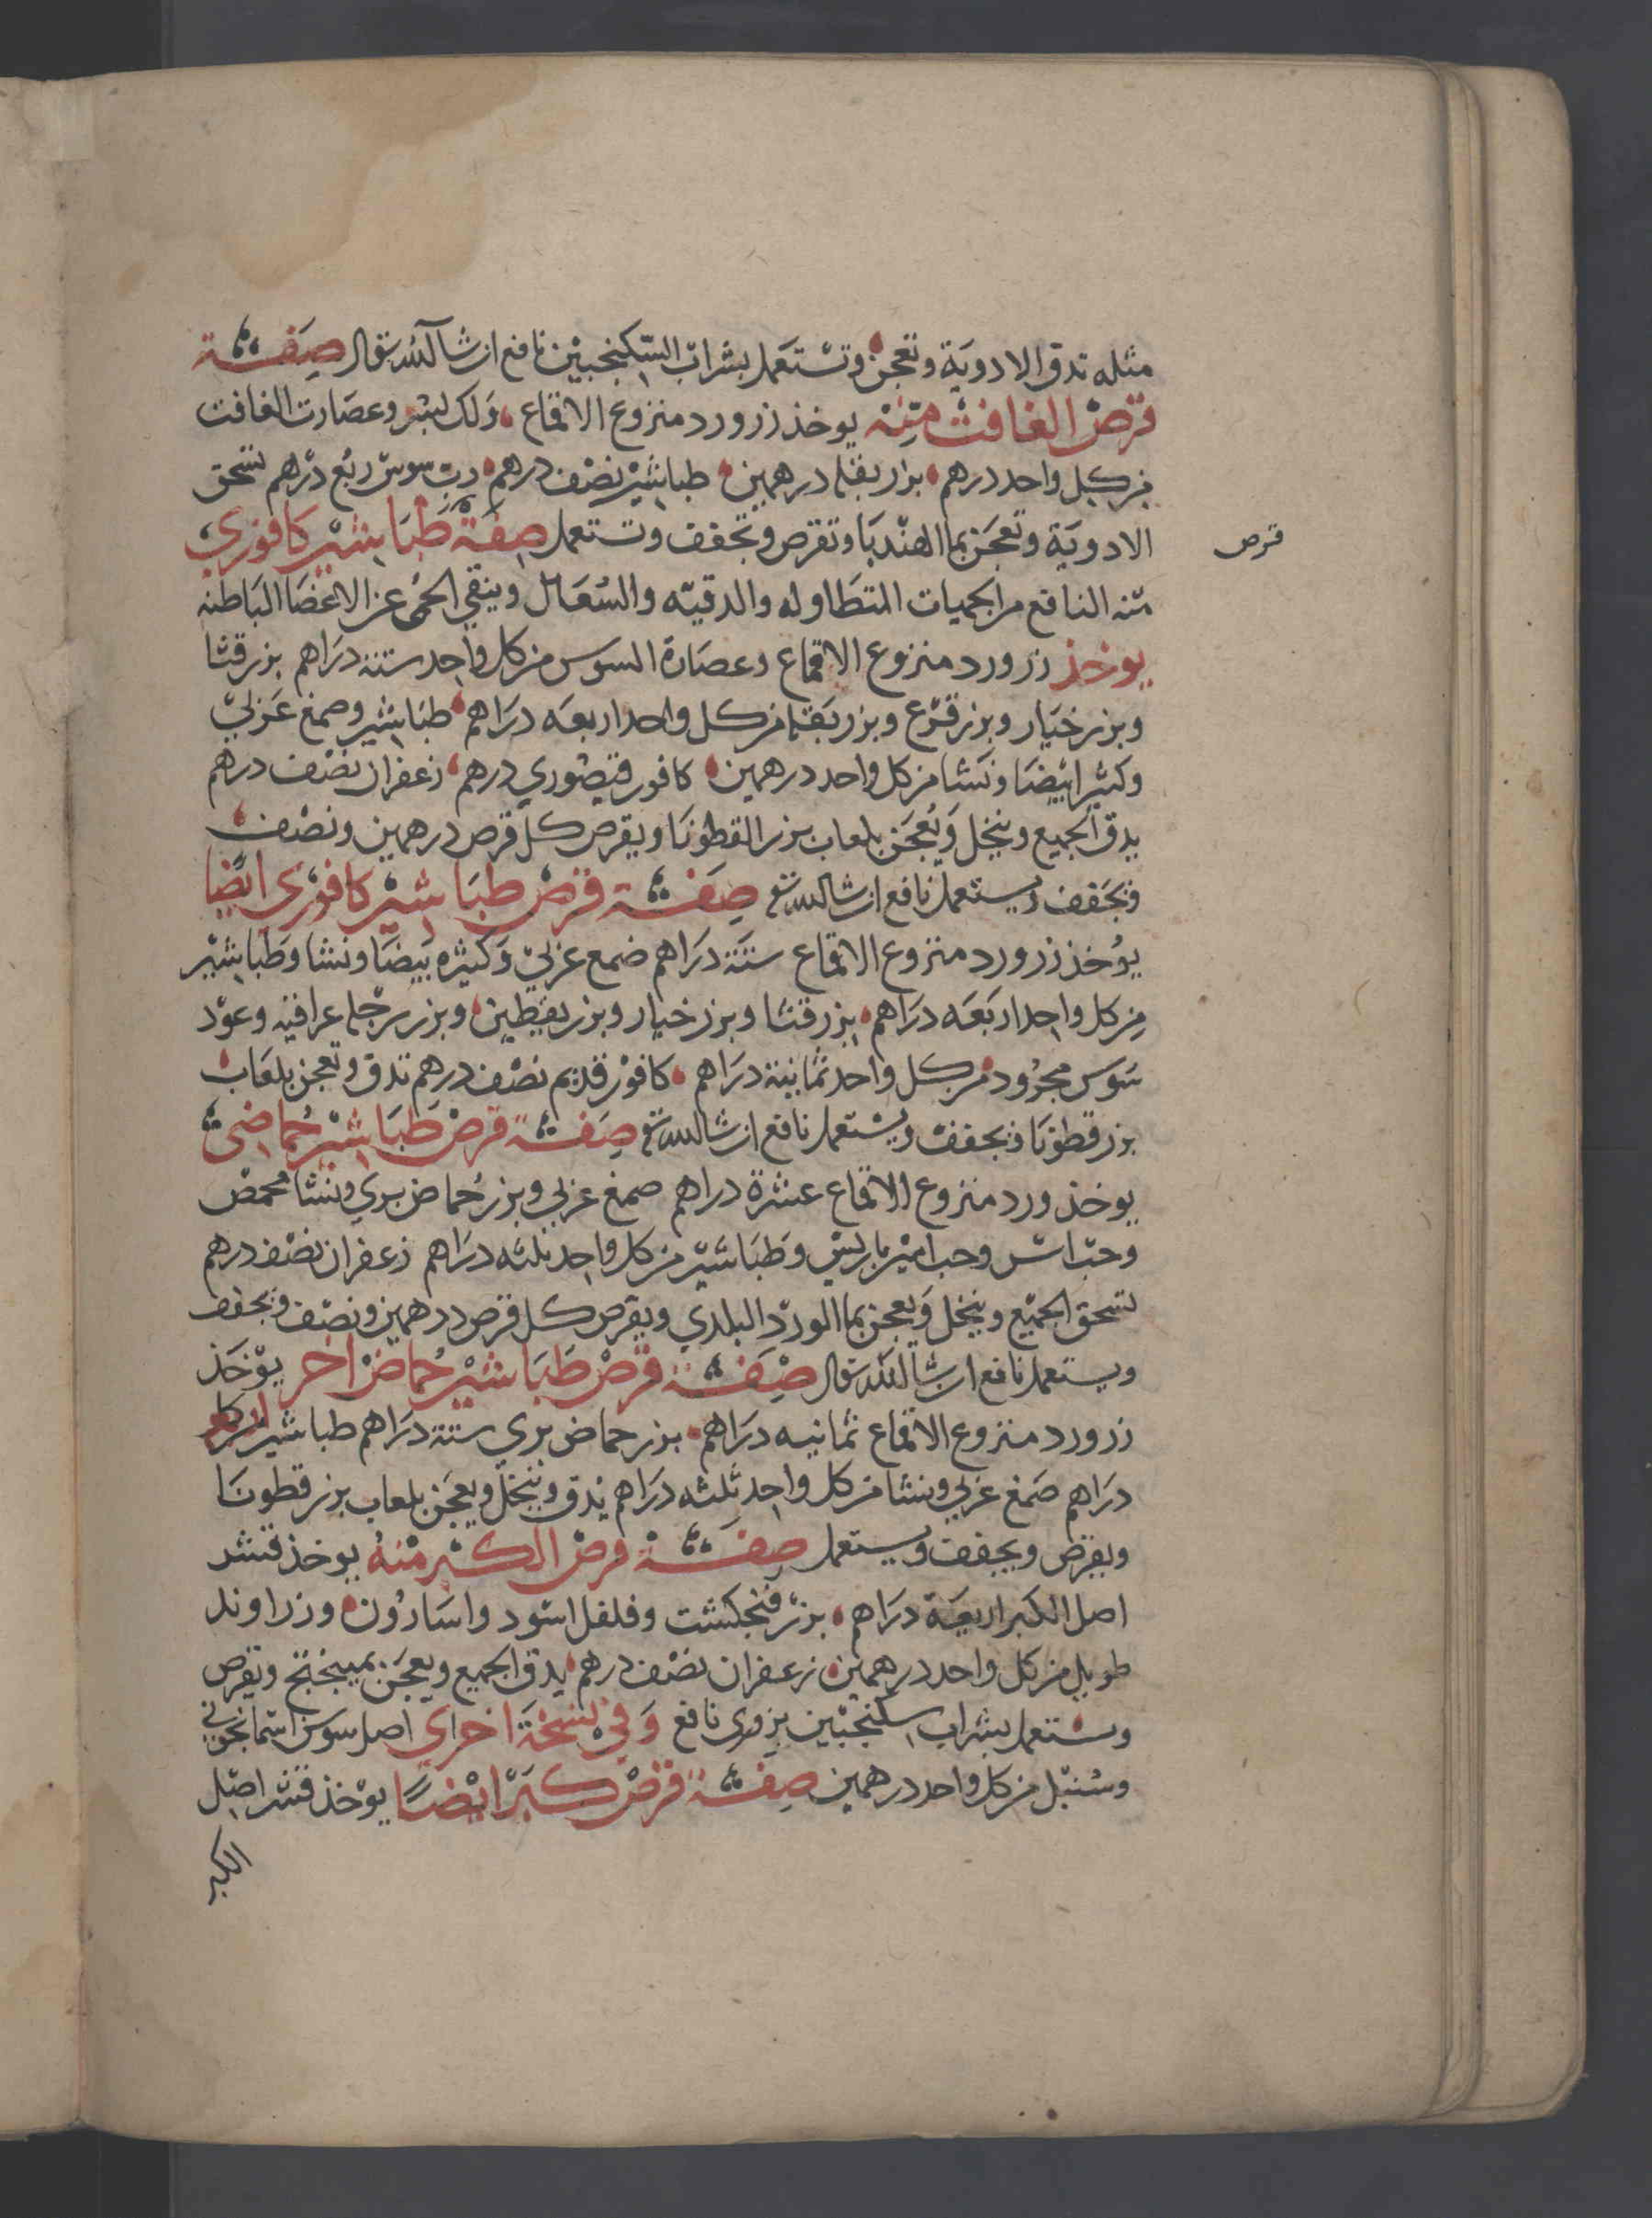 مثله تدق الادويَة وتعجن وتستَعمل بشراب السّكنجبيْن نافع ان شا الله تعالى صِفَة
قرصْ الغافث منه يوخذ زر ورد منزوع الاقماع ولك لبشر وعصَارت الغافت
من كل واحد درهم بزر بقلة درهمين طباشيْر نصْف درهم رب سوس ربع درْهم تسحق
الادويَة وتعجَن بما الهنْدبَا وتقرص وتجفف وتستعمل صِفَة طبَاشيْر كافوري
قرص
منه النافع من الحميات المتطَاوله والدقيّه والسُعَال وينقي الحمى عن الاعْضَا البَاطنه
يوخذ زر ورد منزوع الاقماع وعصَارة السوس من كل واحِد ستة درَاهم بزر قثا
وبزر خيَار وبزر قرْع وبزر بَقلة من كل واحد اربعَه درَاهم طبَاشيْر وصمغ عَربيْ
وكثيرا بيْضَا ونَشا من كل واحد درهمين كافور قيصُوري درهم زعفران نصْف درهم
يدق الجميع وينخل وَيُعجَن بلعاب بزر القطوُنَا ويقرص كل قرص درهمين ونصْف
ويجَفف ويستعمل نافع ان شا الله تع صِفَة قرصْ طبَاشيْر كافوْري ايضًا
يوُخذ زر ورد منزوع الاقماع ستَة درَاهم ضمع عَربيْ وَكثيْره بَيضَا ونشا وَطبَاشيْر
مِن كل واحِد اربَعَه درَاهم بزر قثا وبزر خيار وبزر يقطين وبزر رجلة عراقيه وعوْد
سَوس مجرُود من كل واحد ثمانية درَاهم كافوْر قديم نصْف درهم تدق وتعجن بلعَاب
بزر قطونَا ويجفف ويسْتعمل نافع ان شا الله تع صِفَة قرصْ طبَاشيْر حُماضيْ
يوخذ ورد منزوع الاقماع عشرة دراهم صمغ عربي وبزر حُماض بري ونشا محمصْ
وحبّ اسْ وحب اميْر باريسْ وطبَاشيّر من كل واحِد ثلثه درَاهم زعفران نصْف درهم
تسحق الجمْيع وينخل وَيعجن بما الورد البلدي ويقرص كل قرص درهمين ونصْف ويجفف
ويستعمل نافع ان شا الله تعالى صِفَة قرصْ طبَاشيْر حُماضْ اخر يؤخَذ
زر ورد منزوع الاقماع ثمانيه درَاهم بزر حماض بري ستة درَاهم طباشيْر
درَاهم صَمغ عَربي ونشا من كل واحِد ثلثه درَاهم يُدق ويُنخل ويعجَن بلعاب بزر قطونَا
ويقرص ويجفف ويستعمل صِفَة قرصْ الكبْر منْهُ يوخذ قشر
اصل الكبر اربعَة درَاهم بزرْ فنجكشت وفلفل اسْود واسَاروُن وزراوند
طويل من كل واحد درهمين زعفران نصْف درهم يدق الجميع ويعجَن بميبختج ويقرص
ويستعمل بشراب سكنجبْين بزوري نافع وَفيْ نسْخَة اخراي اصل سوسن اسْمانجوني
وسنبل من كل واحد درهمين صِفَة قرصْ كبَرْ ايْضًا يوْخذ قشر اصْل
الكبر